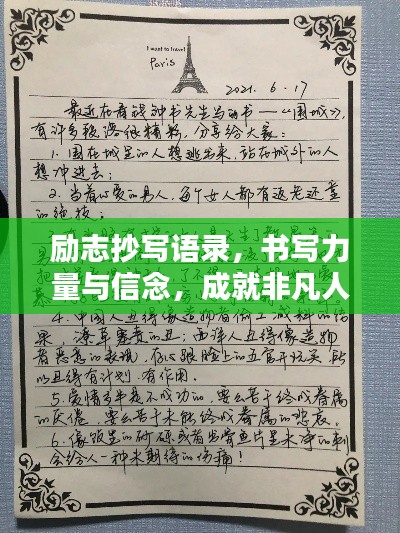 I want to travel
Paris
2021.6.17
最近在看钱钟书先生写的书——《围城》,
有许多段落很精彩,分享给大家:
1.围在城里的人想逃出来,站在城外的人
想冲进去;
2.当着心爱的男人,每个女人都有返老还童
的绝技;
励志抄写语录，书写力
量与信念，成就非凡人
4.中国人丑得像造物者偷工减料的结
果,潦草塞责的丑;西洋人丑得像造物
者恶意的表现,存心跟脸上的五官开玩笑,所
以丑得有计划、有作用。
5.爱情多半是不成功的,要么苦于终成眷属
的厌倦,要么苦于未能终成眷属的悲哀。
6.像饭里的砂砾或者出骨鱼片里未净的刺
会给人一种未期待的伤痛!